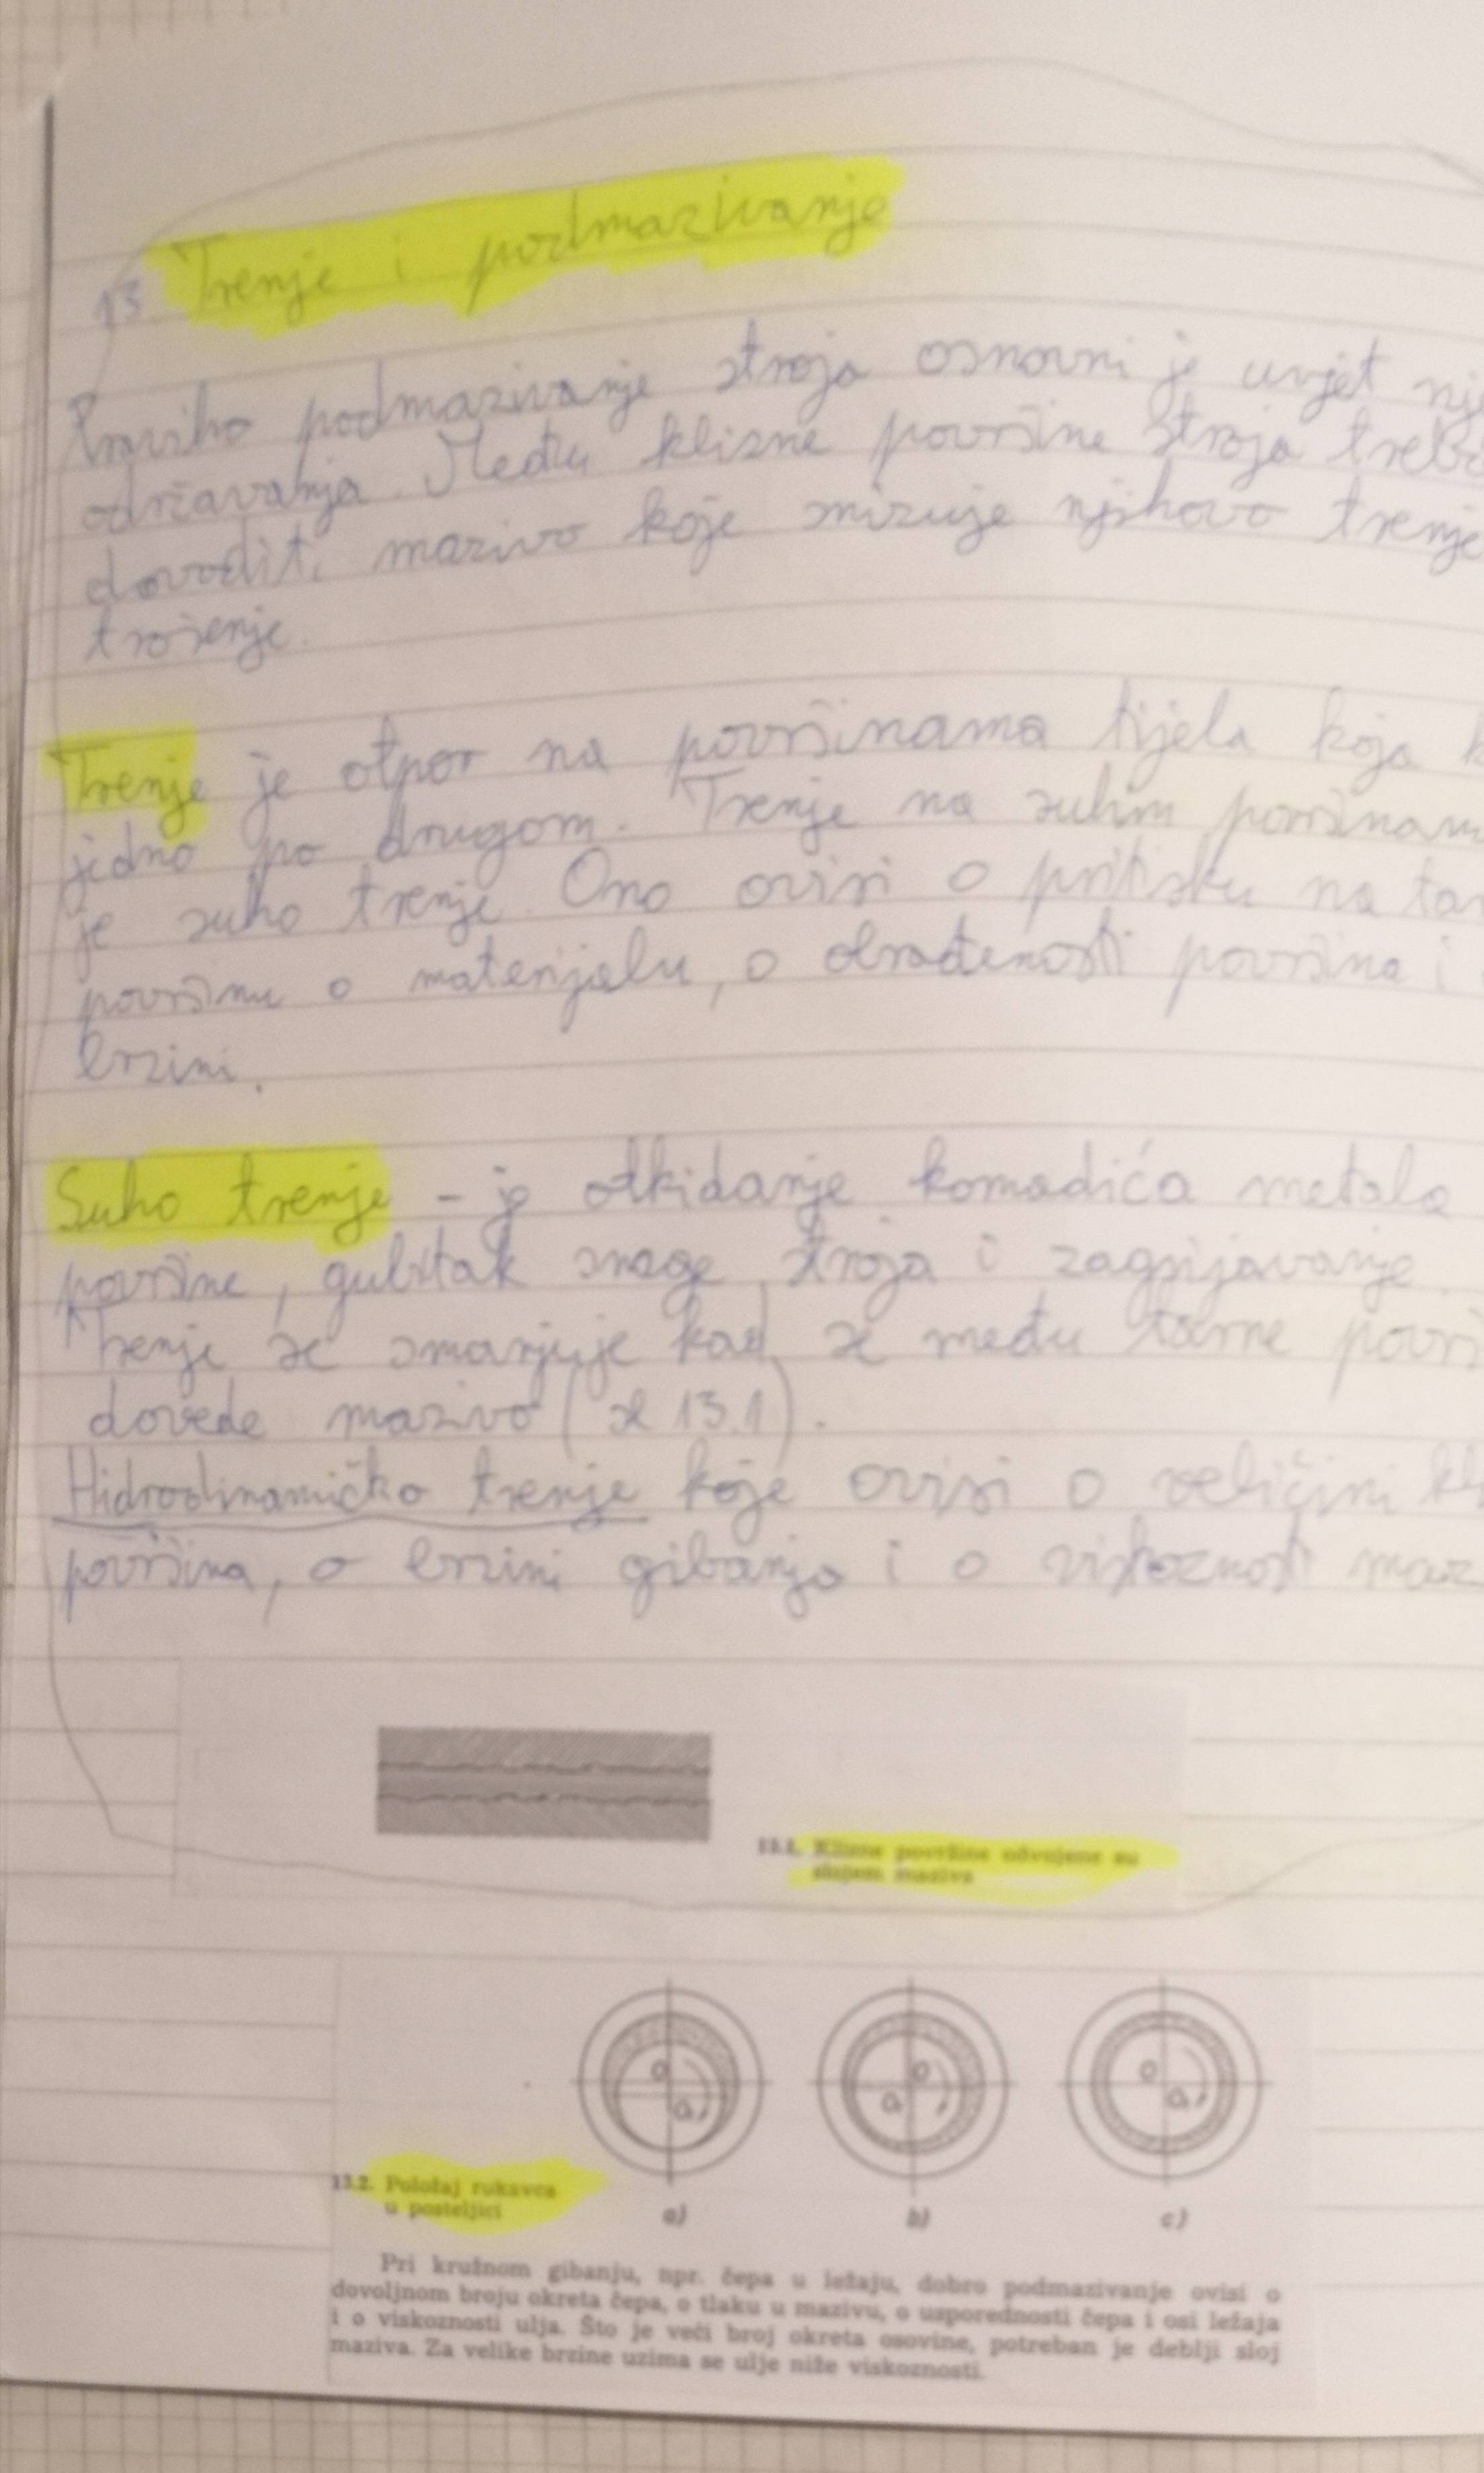 13 Trenje i podmazivanje
Pravilno podmazivanje stroja osnovni je uvjet
održavanja. Među klizne površine stroja
dovoditi mazivo koje snizuje njihovo trenje
trošenje.
Trenje je otpor na površinama tijela koja
jedno po drugom. Trenje na suhim
je suho trenje. Ono ovisi o pritisku na
površinu o materijalu, o obrađenosti površina i
brzini.
Suho trenje - je otkidanje komadića metala
površine, gubitak snage stroja i zagrijavanje.
Trenje se smanjuje kad se među tarne
dovede mazivo (sl 13.1).
Hidrodinamičko trenje koje ovisi o veličini
površina, o brzini gibanja i o viskoznosti
13.1. Klizne površine odvojene su
slojem maziva
O O₁ O O₁ O O₁
13.2. Položaj rukavca
u posteljici
a) b) c)
Pri kružnom gibanju, npr. čepa u ležaju, dobro podmazivanje ovisi o
dovoljnom broju okreta čepa, o tlaku u mazivu, o usporednosti čepa i osi ležaja
i o viskoznosti ulja. Što je veći broj okreta osovine, potreban je deblji sloj
maziva. Za velike brzine uzima se ulje niže viskoznosti.